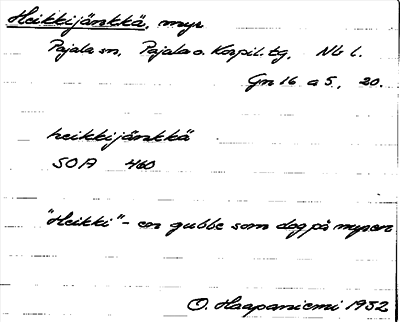 Heikkijänkkä, myr
Pajala sn, Pajala o. Korpil. tg, Nb l.
Gn 16 a 5, 20.
heikkijänkkä
SOA 460
"Heikki" - en gubbe som dog på myren
O. Haapaniemi 1932